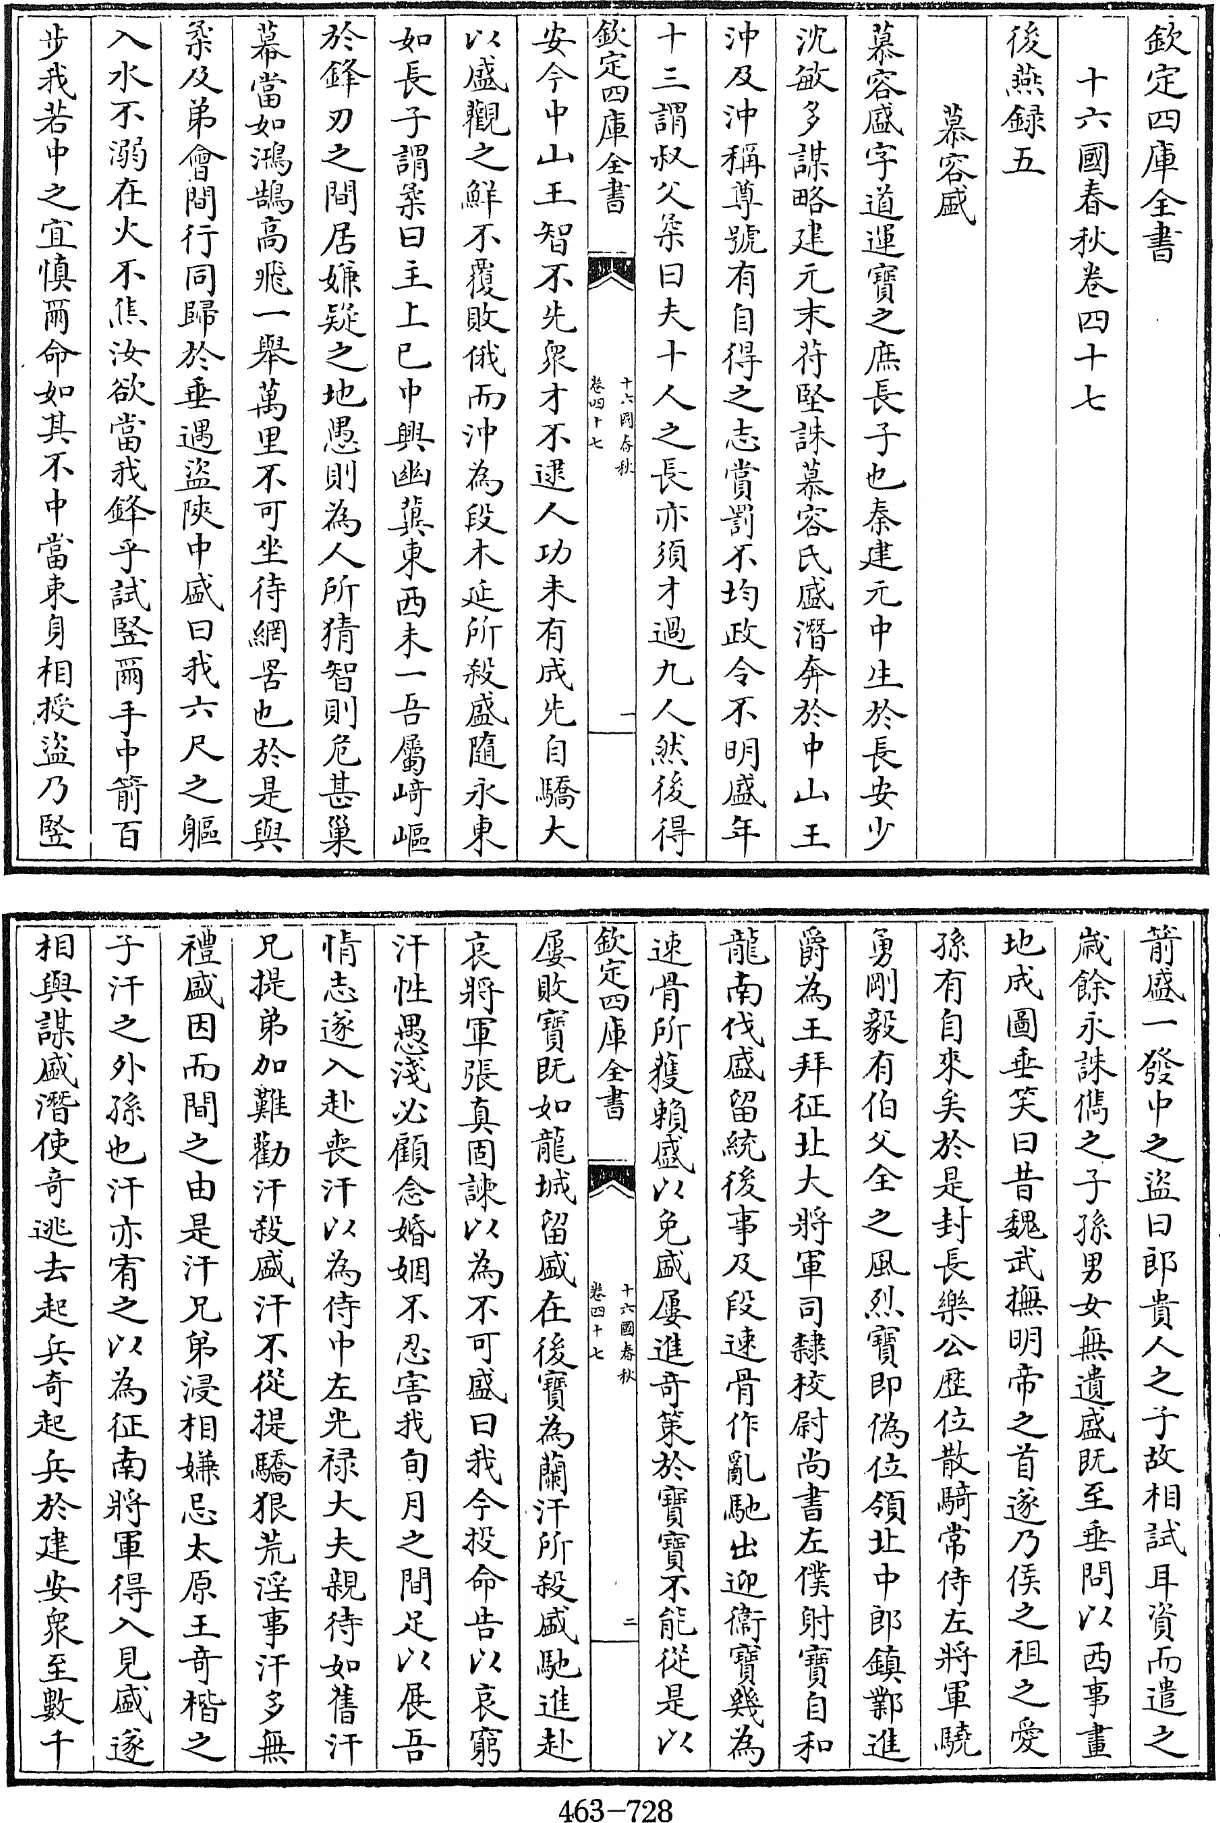 欽定四庫全書
十六國春秋卷四十七
後燕録五
慕容盛
慕容盛字道運寶之庶長子也秦建元中生於長安少
沈敏多謀略建元末苻堅誅慕容氏盛潛奔於中山王
沖及沖稱尊號有自得之志賞罰不均政令不明盛年
十三謂叔父柔曰夫十人之長亦須才過九人然後得
欽定四庫全書
十六國春秋
卷四十七
一
安今中山王智不先衆才不逮人功未有成先自驕大
以盛觀之鮮不覆敗俄而沖為段木延所殺盛隨永東
如長子謂柔曰主上已中興幽冀東西未一吾屬﨑嶇
於鋒刃之間居嫌疑之地愚則為人所猜智則危甚巢
幕當如鴻鵠高飛一舉萬里不可坐待網罟也於是與
柔及弟會間行同歸於垂遇盜陜中盛曰我六尺之軀
入水不溺在火不焦汝欲當我鋒乎試竪爾手中箭百
步我若中之宜慎爾命如其不中當束身相授盜乃竪
箭盛一發中之盜曰郎貴人之子故相試耳資而遣之
歲餘永誅儁之子孫男女無遺盛既至垂問以西事畫
地成圖垂笑曰昔魏武撫明帝之首遂乃侯之祖之愛
孫有自來矣於是封長樂公歷位散騎常侍左將軍驍
勇剛毅有伯父全之風烈寶即偽位領北中郎鎮鄴進
爵為王拜征北大將軍司隸校尉尚書左僕射寶自和
龍南伐盛留統後事及段速骨作亂馳出迎衞寶幾為
速骨所獲賴盛以免盛屢進奇策於寶寶不能從是以
欽定四庫全書
十六國春秋
卷四十七
二
屢敗寶既如龍城留盛在後寶為蘭汗所殺盛馳進赴
哀將軍張真固諫以為不可盛曰我今投命告以哀窮
汗性愚淺必顧念婚姻不忍害我旬月之間足以展吾
情志遂入赴喪汗以為侍中左光禄大夫親待如舊汗
兄提弟加難勸汗殺盛汗不從提驕狠荒淫事汗多無
禮盛因而間之由是汗兄弟浸相嫌忌太原王奇楷之
子汗之外孫也汗亦宥之以為征南將軍得入見盛遂
相與謀盛潛使奇逃去起兵奇起兵於建安衆至數千
463-728